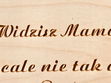 Widzisz Mamo
cale nie tak